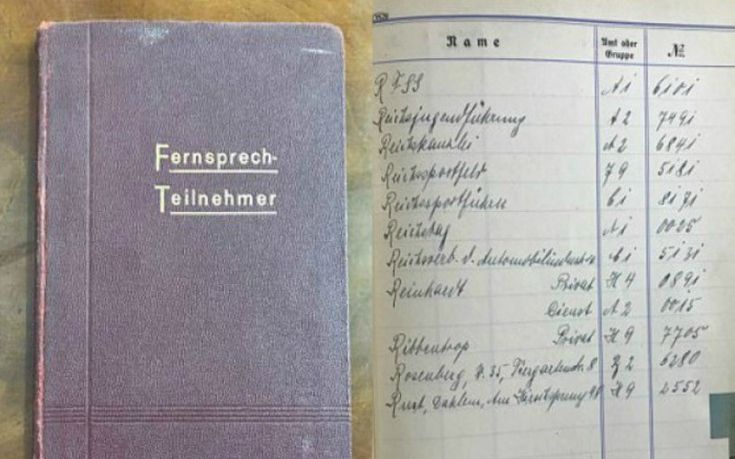 Fernsprech-
Teilnehmer
Name Amt oder Gruppe №
RFSS A1 6101
Reichsjugendführung A2 7491
Reichskanzlei A2 6841
Reichssportfeld J9 5181
Reichssportführer C1 8171
Reichstag A1 0025
Reichsverb. d. Automobilindustr. A1 5131
Reinhardt Privat H4 0891
Dienst A2 0015
Ribbentrop Privat H9 7705
Rosenberg, W. 35, Tiergartenstr. 8 B2 6280
Rust, Dahlem, Am Hirschsprung H9 2552